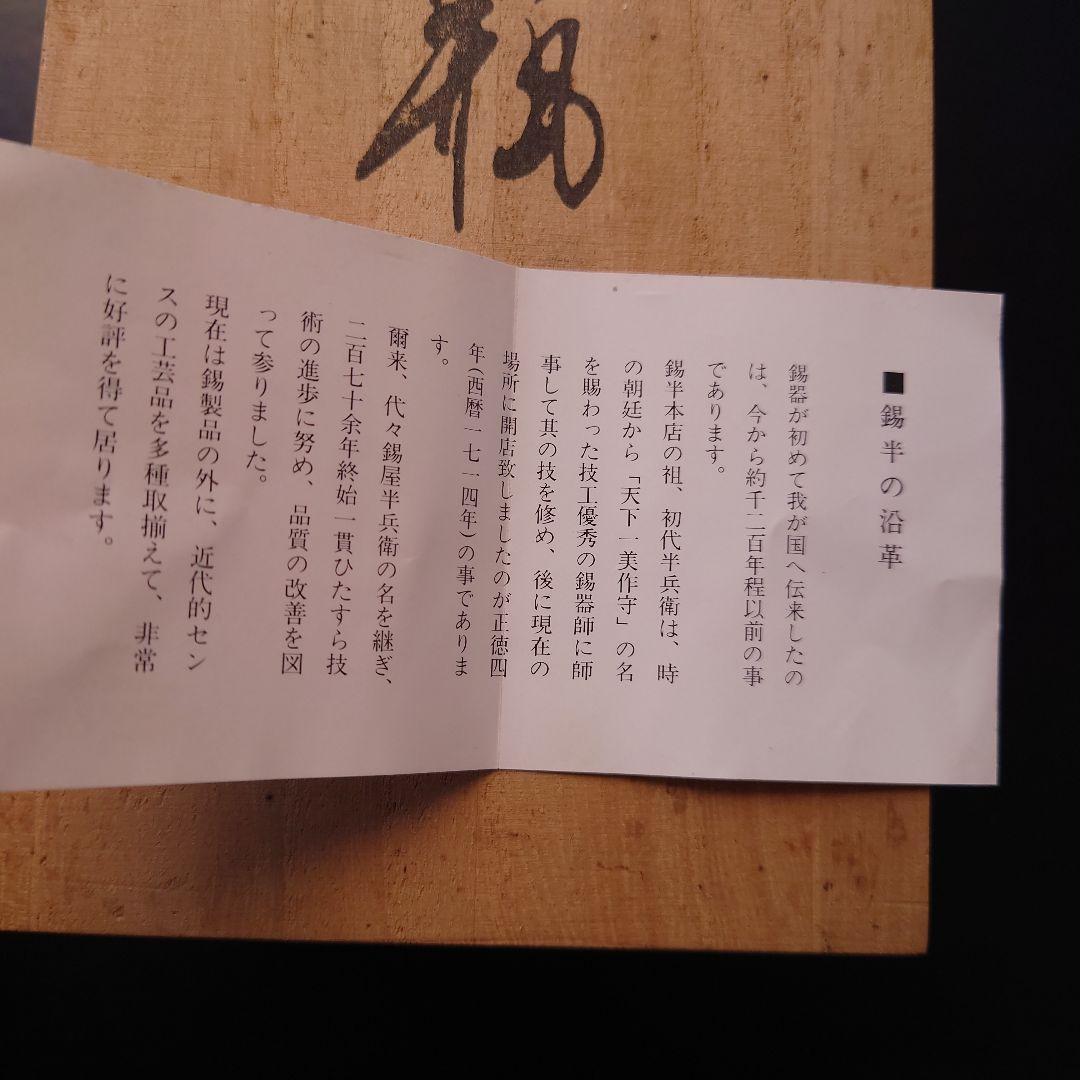 瓶
■錫半の沿革
錫器が初めて我が国へ伝来したの
は、今から約千二百年程以前の事
であります。
錫半本店の祖、初代半兵衛は、時
の朝廷から「天下一美作守」の名
を賜わった技工優秀の錫器師に師
事して其の技を修め、後に現在の
場所に開店致しましたのが正徳四
年(西暦一七一四年)の事でありま
す。
爾来、代々錫屋半兵衛の名を継ぎ、
二百七十余年終始一貫ひたすら技
術の進歩に努め、品質の改善を図
って参りました。
現在は錫製品の外に、近代的セン
スの工芸品を多種取揃えて、非常
に好評を得て居ります。